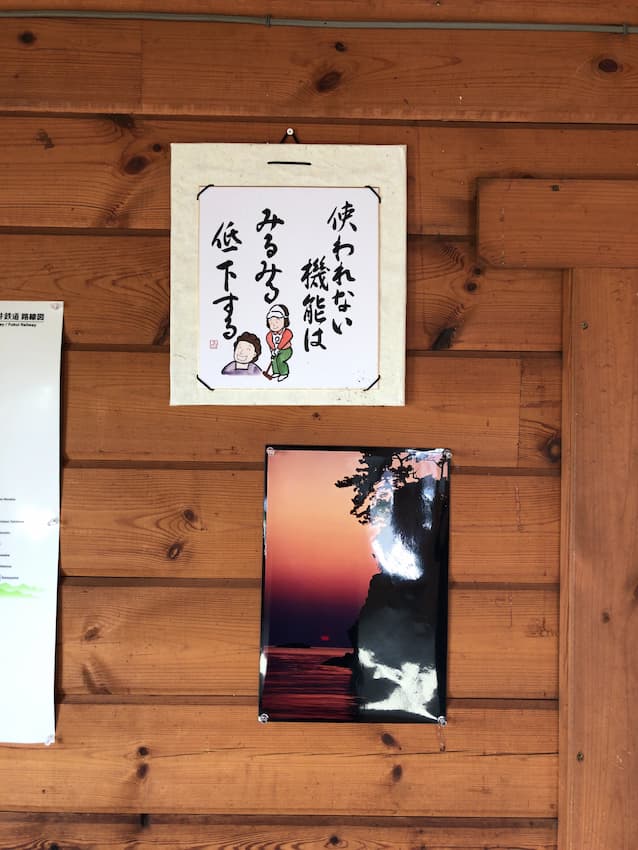 使われない
機能は
みるみる
低下する
井鉄道 路線図
ay / Fukui Railway